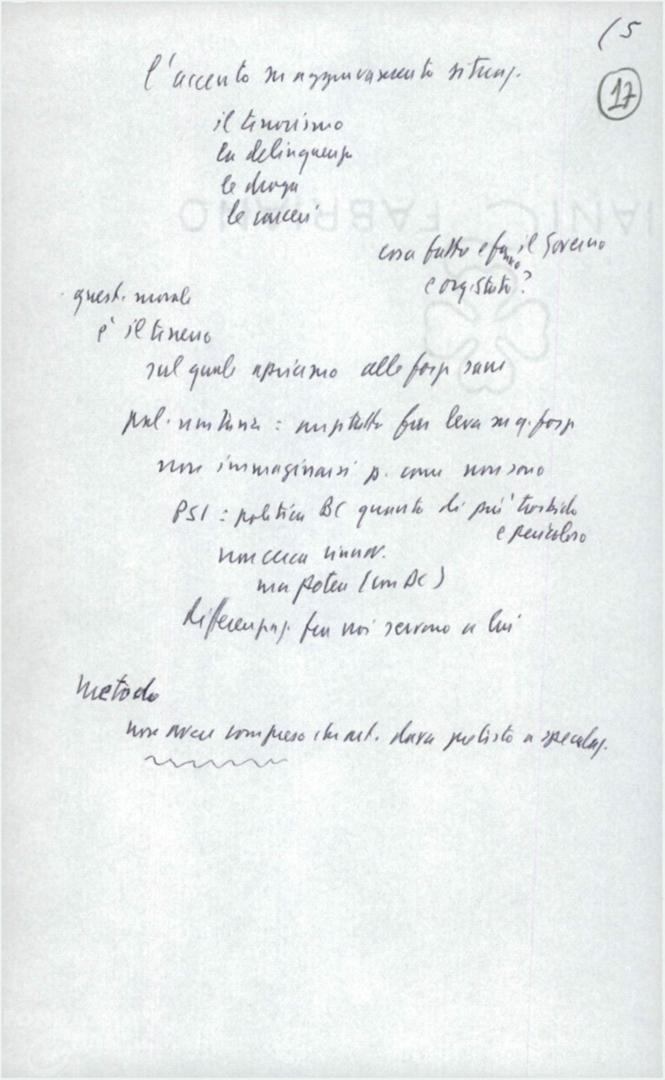 15
17
l'accento su aggravamento situaz.
il terrorismo
la delinquenza
la droga
le carceri
cosa fatto e fanno il Governo
e org. Stato?
quest. morale
è il terreno
sul quale apriamo alle forze sane
pol. unitaria : soprattutto far leva su q. forze
non immaginarsi p. come non sono
PSI : politica BC quanto di più torbido
e pericoloso
non cerca rinnov.
ma potere (con DC)
differenziaz. fra noi servono a lui
Metodo
non aver compreso che art. dava pretesto a speculaz.
FABRIANO